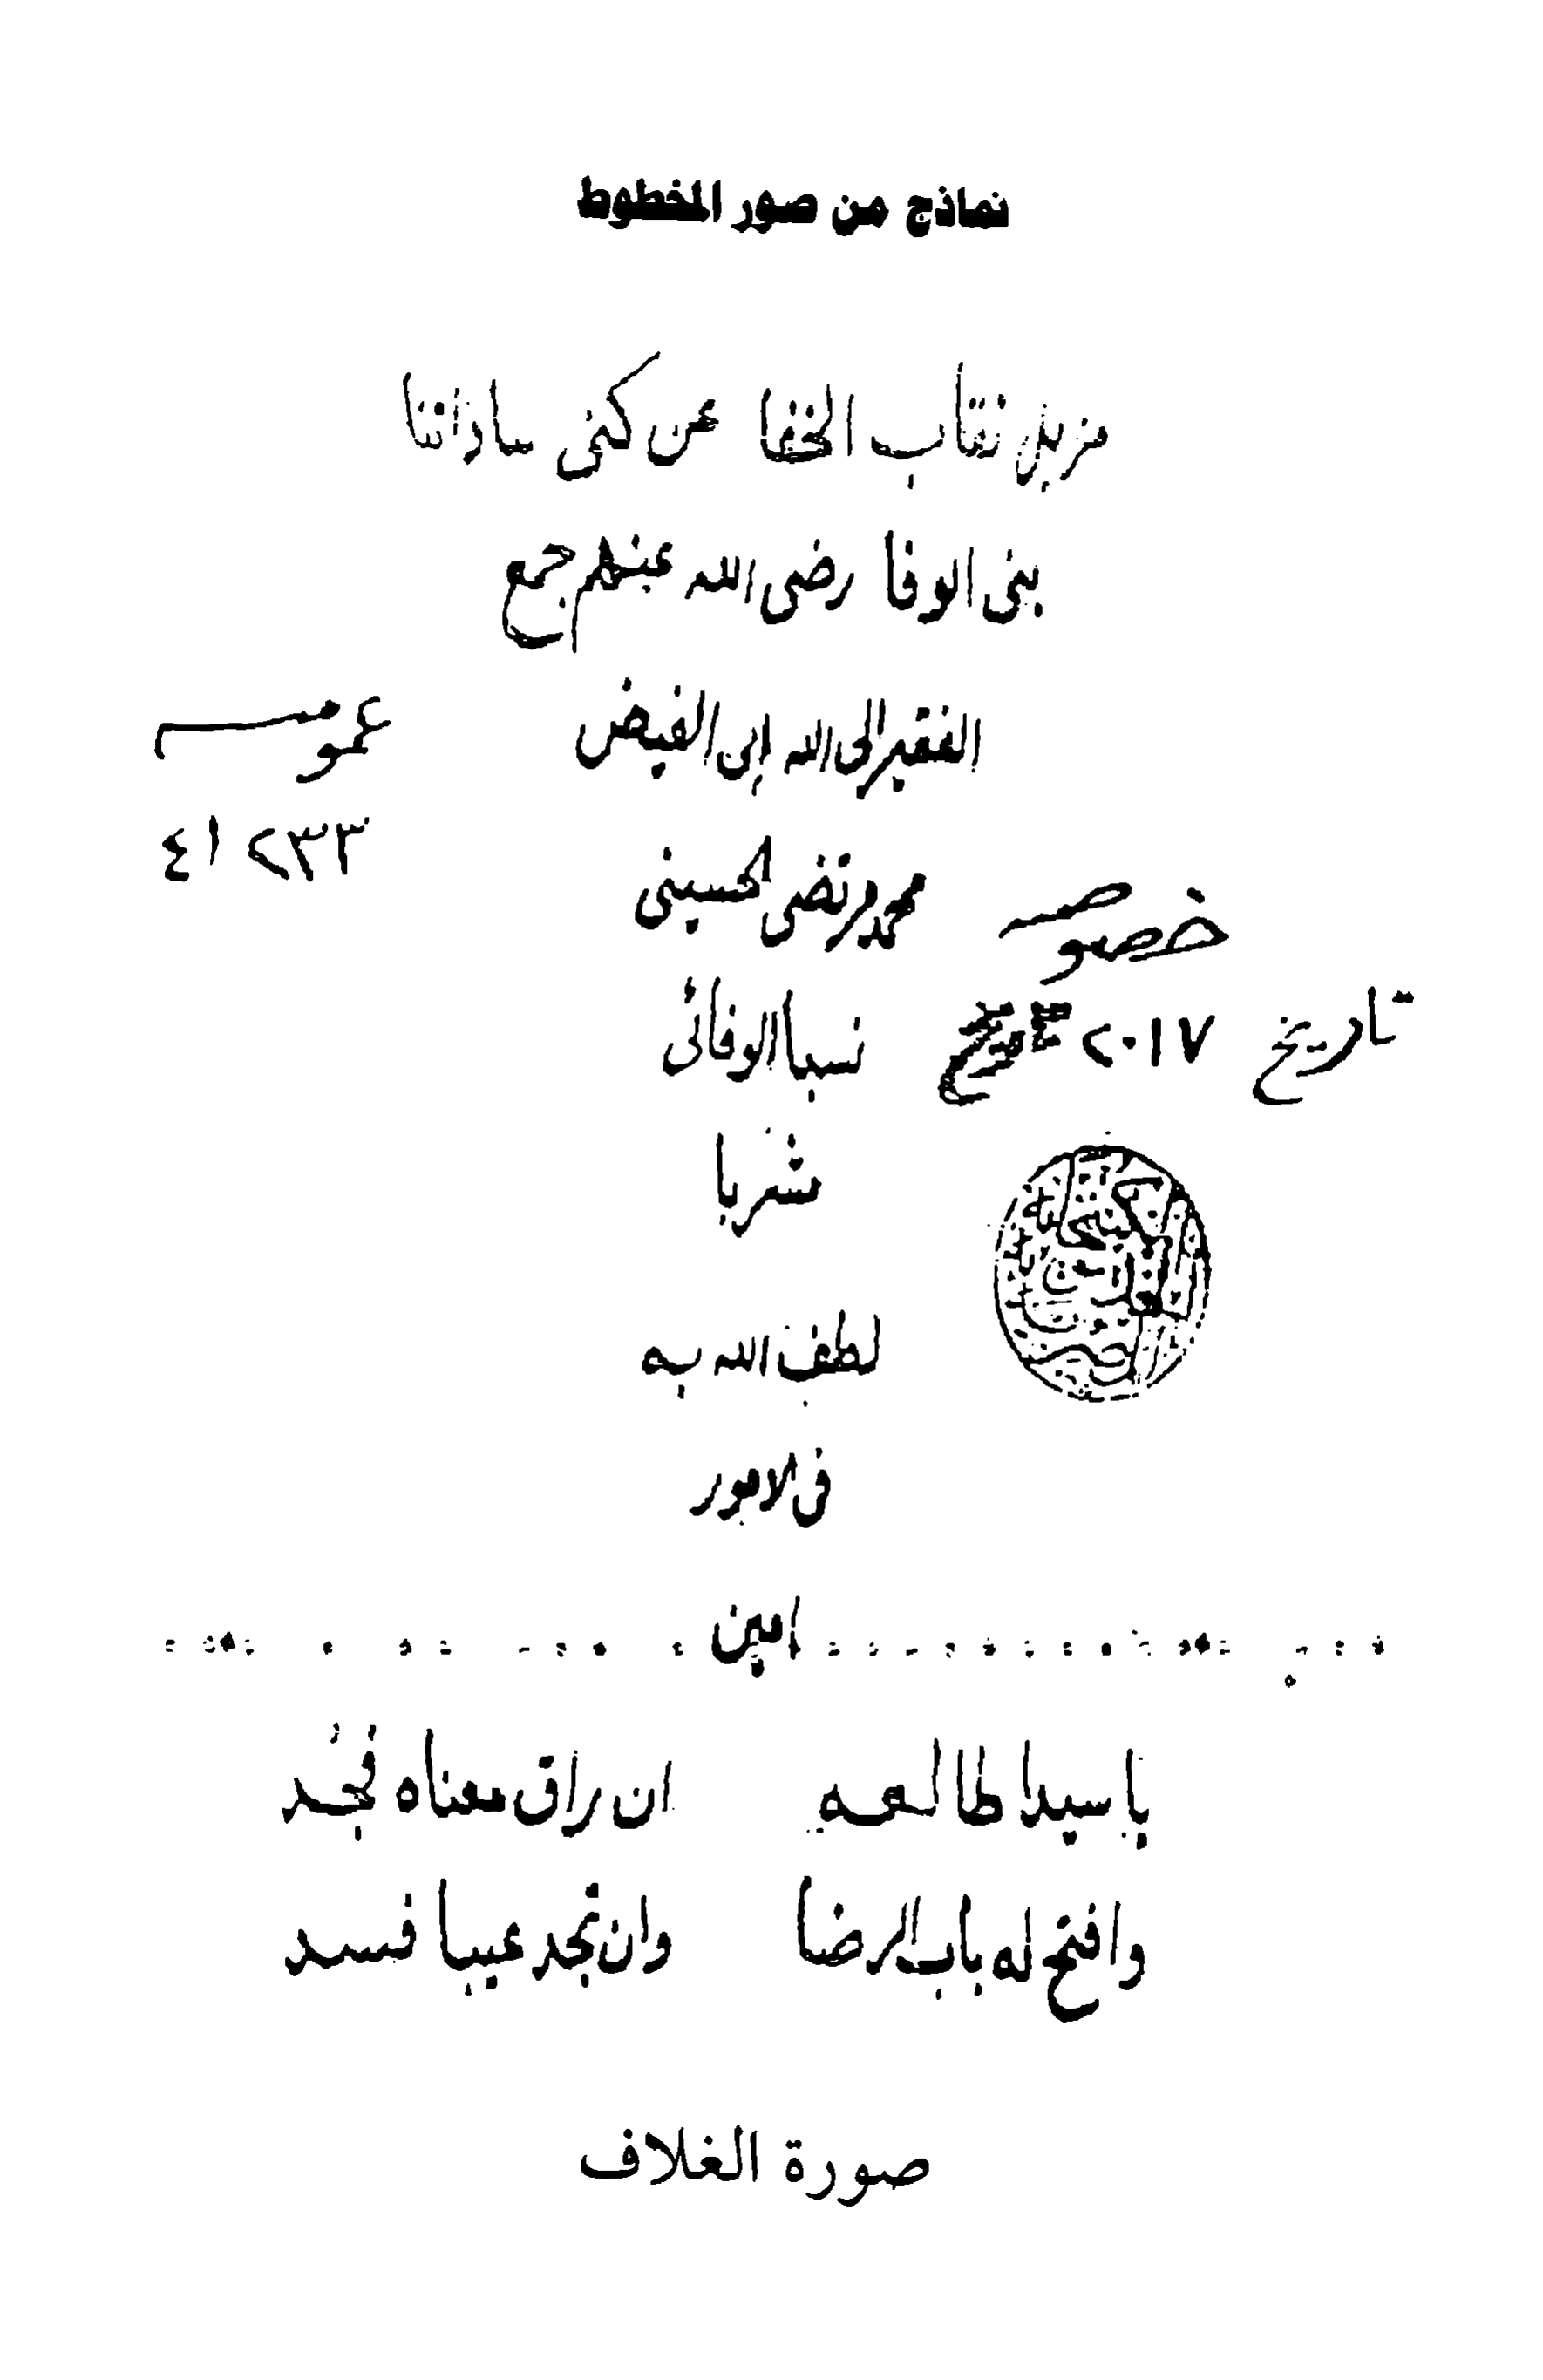 نماذج من صور المخطوط
مزيل نقاب الخفا عن كنى ساداتنا
بنى الوفا رضى الله عنهم جمع
الفقير الى الله ابى الفيض
عمو
٤١٢٣٣
محمد مرتضى الحسينى
خصو
نسبا الوفائى
تاريخ ٢٠١٧
مشربا
لطف الله به
فى الامور
امين
يا سيدا طالعه ان راق معناه فعد
وافتح له باب الرضا وان تجد عيبا فسد
صورة الغلاف